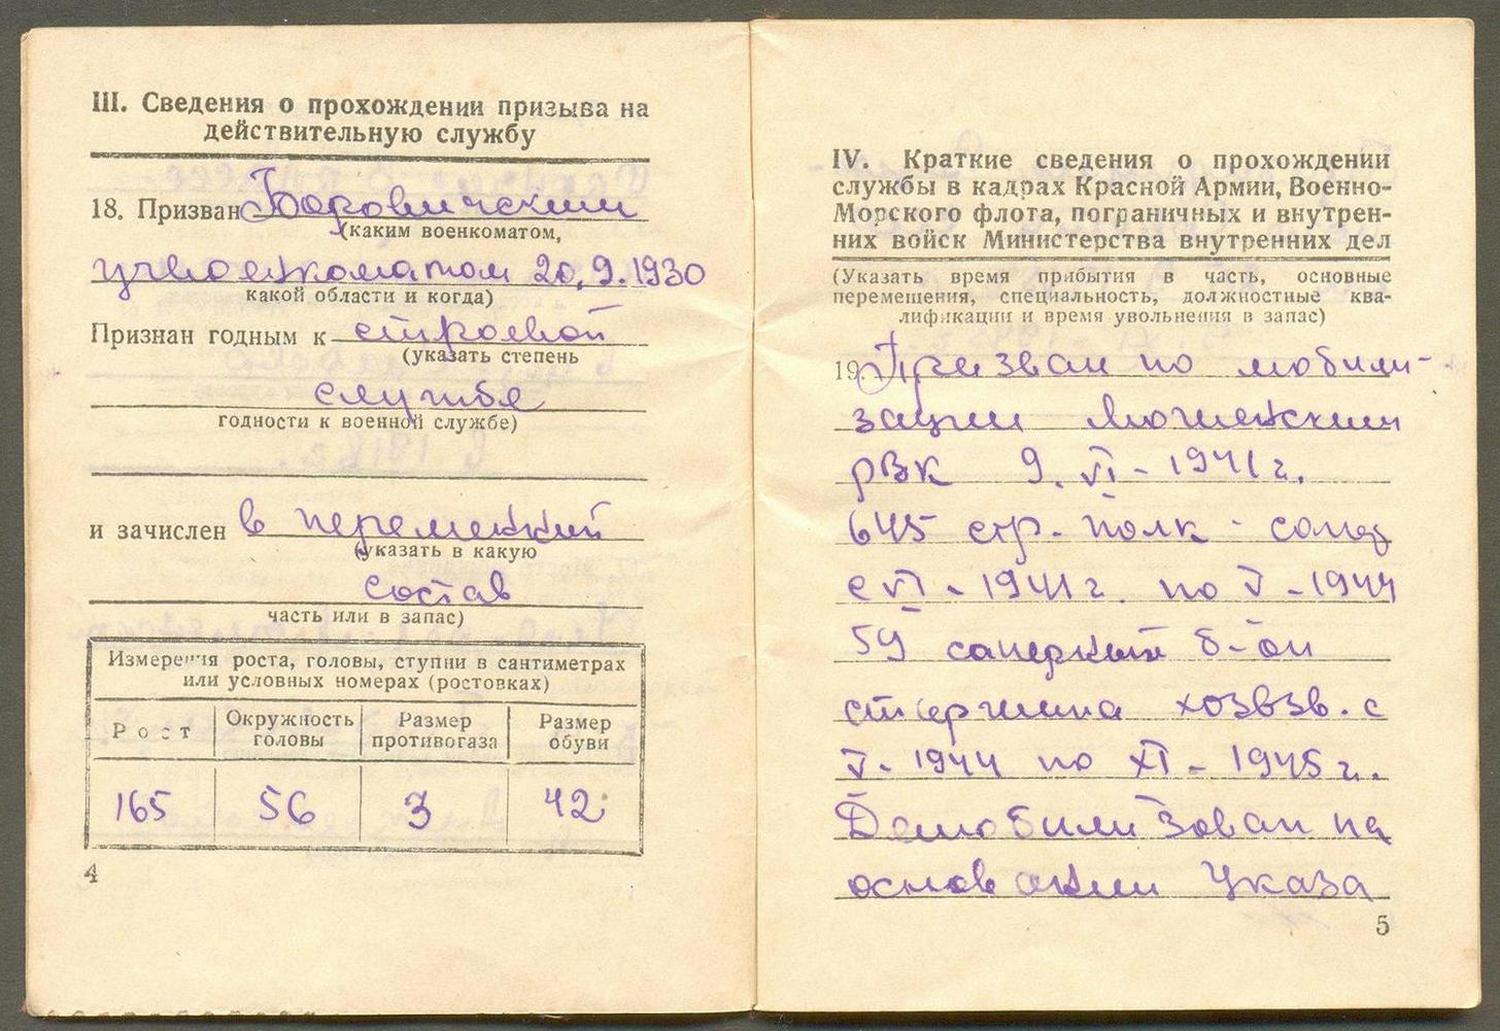 III. Сведения о прохождении призыва на
действительную службу
18. Призван Боровичским
(каким военкоматом,
у. военкоматом 20.9.1930
какой области и когда)
Признан годным к строевой
(указать степень
службе
годности к военной службе)
и зачислен в переменный
(указать в какую
состав
часть или в запас)
Измерения роста, головы, ступни в сантиметрах
или условных номерах (ростовках)
Рост
Окружность
головы
Размер
противогаза
Размер
обуви
165 56 3 42
4
IV. Краткие сведения о прохождении
службы в кадрах Красной Армии, Военно-
Морского флота, пограничных и внутрен-
них войск Министерства внутренних дел
(Указать время прибытия в часть, основные
перемещения, специальность, должностные ква-
лификации и время увольнения в запас)
19. Призван по мобили-
зации
РВК 9. VI - 1941 г.
645 стр. полк -
с VI - 1941 г. по V - 1944
59 саперный б-он
старшина хозвзв. с
V - 1944 по XI - 1945 г.
Демобилизован на
основании Указа
5